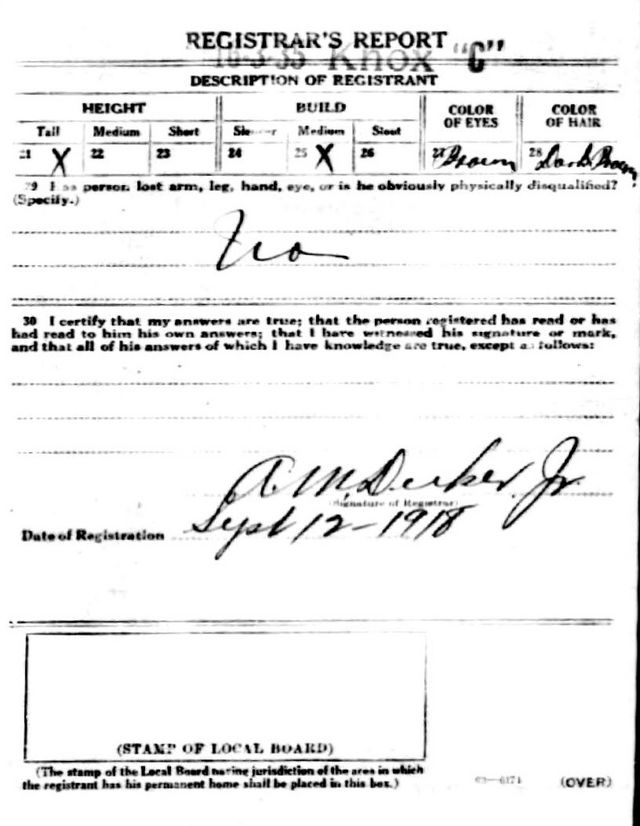 REGISTRAR'S REPORT
Knox "C"
DESCRIPTION OF REGISTRANT
HEIGHT BUILD COLOR OF EYES COLOR OF HAIR
Tall Medium Short Medium Stout
21 X 22 23 24 25 X 26 27 Brown 28 Dark Brown
29 Has person lost arm, leg, hand, eye, or is he obviously physically disqualified?
(Specify.)
No
30 I certify that my answers are true; that the person registered has read or has
had read to him his own answers; that I have witnessed his signature or mark,
and that all of his answers of which I have knowledge are true, except as follows:
A. M. Decker, Jr.
(Signature of Registrar)
Date of Registration Sept 12-1918
(STAMP OF LOCAL BOARD)
(The stamp of the Local Board having jurisdiction of the area in which
the registrant has his permanent home shall be placed in this box.)
(OVER)